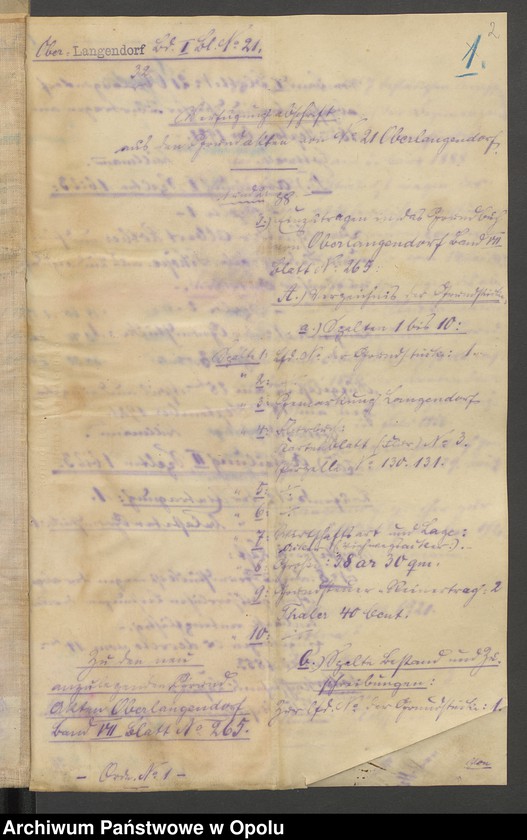 2
1.
Ober-Langendorf Bd. I Bl. No 21.
Verfügungsabschrift
aus den Grundakten von No 21 Oberlangendorf.
2.) einzutragen in das Grundbuch
Oberlangendorf Band VII
Blatt No 265:
A.) Verzeichnis der Grundstücke,
a.) Spalten 1 bis 10:
Spalte 1: lfd. No der Grundstücke: 1.
" 2:
" 3: Gemarkung: Langendorf
4:
Kartenblatt (Flur) No 3.
Parzelle No 130. 131.
5:
6:
7: Wirtschaftsart und Lage:
8: Größe: 38 ar 30 qm.
9: Grundsteuer-Reinertrag: 2
Thaler 40 Cent.
10:
b.) Spalte Bestand und Zu-
schreibungen:
Zur lfd. No der Grundstücke: 1.
Zu den neu
anzulegenden Grund-
Akten Oberlangendorf
Band VII Blatt No 265.
- Ordn. No 1 -
Archiwum Państwowe w Opolu